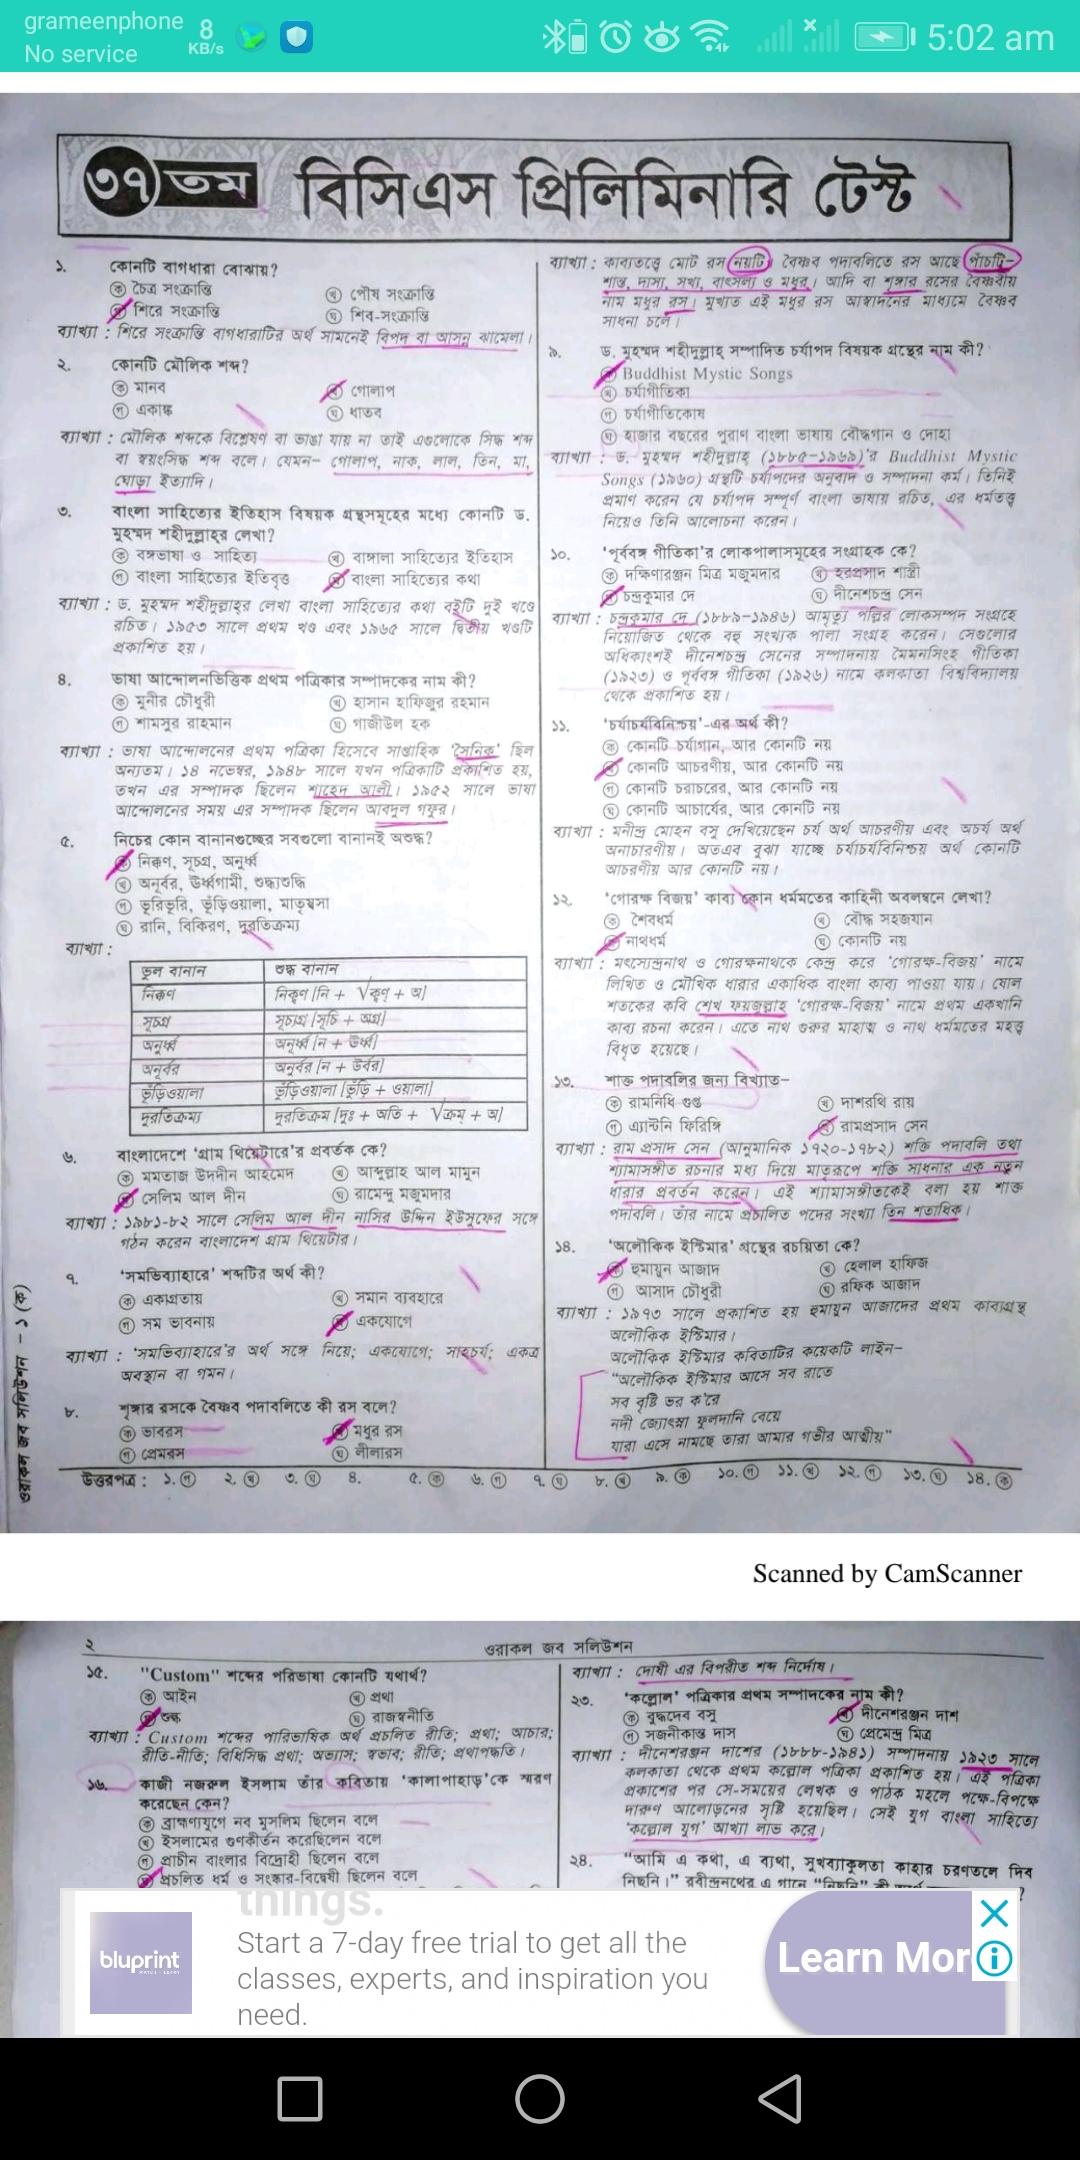 grameenphone
No service
8
KB/s
5:02 am
৩৭ তম বিসিএস প্রিলিমিনারি টেস্ট
১. কোনটি বাগধারা বোঝায়?
ক চৈত্র সংক্রান্তি খ পৌষ সংক্রান্তি
শিরে সংক্রান্তি ঘ শিব-সংক্রান্তি
ব্যাখ্যা : শিরে সংক্রান্তি বাগধারাটির অর্থ সামনেই বিপদ বা আসন্ন ঝামেলা।
২. কোনটি মৌলিক শব্দ?
ক মানব গোলাপ
গ একাঙ্ক ঘ ধাতব
ব্যাখ্যা : মৌলিক শব্দকে বিশ্লেষণ বা ভাঙা যায় না তাই এগুলোকে সিদ্ধ শব্দ
বা স্বয়ংসিদ্ধ শব্দ বলে। যেমন– গোলাপ, নাক, লাল, তিন, মা,
ঘোড়া ইত্যাদি।
৩. বাংলা সাহিত্যের ইতিহাস বিষয়ক গ্রন্থসমূহের মধ্যে কোনটি ড.
মুহম্মদ শহীদুল্লাহর লেখা?
ক বঙ্গভাষা ও সাহিত্য খ বাঙ্গালা সাহিত্যের ইতিহাস
গ বাংলা সাহিত্যের ইতিবৃত্ত বাংলা সাহিত্যের কথা
ব্যাখ্যা : ড. মুহম্মদ শহীদুল্লাহ্‌র লেখা বাংলা সাহিত্যের কথা বইটি দুই খণ্ডে
রচিত। ১৯৫৩ সালে প্রথম খণ্ড এবং ১৯৬৫ সালে দ্বিতীয় খণ্ডটি
প্রকাশিত হয়।
৪. ভাষা আন্দোলনভিত্তিক প্রথম পত্রিকার সম্পাদকের নাম কী?
ক মুনীর চৌধুরী খ হাসান হাফিজুর রহমান
গ শামসুর রাহমান ঘ গাজীউল হক
ব্যাখ্যা : ভাষা আন্দোলনের প্রথম পত্রিকা হিসেবে সাপ্তাহিক 'সৈনিক' ছিল
অন্যতম। ১৪ নভেম্বর, ১৯৪৮ সালে যখন পত্রিকাটি প্রকাশিত হয়,
তখন এর সম্পাদক ছিলেন শাহেদ আলী। ১৯৫২ সালে ভাষা
আন্দোলনের সময় এর সম্পাদক ছিলেন আবদুল গফুর।
৫. নিচের কোন বানানগুচ্ছের সবগুলো বানানই অশুদ্ধ?
নিক্কণ, সূচগ্র, অনুর্ধ্ব
খ অনূর্বর, ঊর্ধ্বগামী, শুদ্ধ্যশুদ্ধি
গ ভূরিভূরি, ভূঁড়িওয়ালা, মাতৃষ্বসা
ঘ রানি, বিকিরণ, দুরতিক্রম্য
ব্যাখ্যা :
ভুল বানান শুদ্ধ বানান
নিক্কণ নিক্বণ [নি + √ক্বণ্ + অ]
সূচগ্র সূচ্যগ্র [সূচি + অগ্র]
অনুর্ধ্ব অনূর্ধ্ব [ন + ঊর্ধ্ব]
অনূর্বর অনুর্বর [ন + উর্বর]
ভূঁড়িওয়ালা ভুঁড়িওয়ালা [ভুঁড়ি + ওয়ালা]
দুরতিক্রম্য দুরতিক্রম [দুঃ + অতি + √ক্রম্ + অ]
৬. বাংলাদেশে 'গ্রাম থিয়েটারে'র প্রবর্তক কে?
ক মমতাজ উদদীন আহমেদ খ আব্দুল্লাহ আল মামুন
সেলিম আল দীন ঘ রামেন্দু মজুমদার
ব্যাখ্যা : ১৯৮১-৮২ সালে সেলিম আল দীন নাসির উদ্দিন ইউসুফের সঙ্গে
গঠন করেন বাংলাদেশ গ্রাম থিয়েটার।
৭. 'সমভিব্যাহারে' শব্দটির অর্থ কী?
ক একাগ্রতায় খ সমান ব্যবহারে
গ সম ভাবনায় একযোগে
ব্যাখ্যা : 'সমভিব্যাহারে'র অর্থ সঙ্গে নিয়ে; একযোগে; সাহচর্য; একত্র
অবস্থান বা গমন।
৮. শৃঙ্গার রসকে বৈষ্ণব পদাবলিতে কী রস বলে?
ক ভাবরস মধুর রস
গ প্রেমরস ঘ লীলারস
ব্যাখ্যা : কাব্যতত্ত্বে মোট রস নয়টি। বৈষ্ণব পদাবলিতে রস আছে পাঁচটি–
শান্ত, দাস্য, সখ্য, বাৎসল্য ও মধুর। আদি বা শৃঙ্গার রসের বৈষ্ণবীয়
নাম মধুর রস। মুখ্যত এই মধুর রস আস্বাদনের মাধ্যমে বৈষ্ণব
সাধনা চলে।
৯. ড. মুহম্মদ শহীদুল্লাহ সম্পাদিত চর্যাপদ বিষয়ক গ্রন্থের নাম কী?
Buddhist Mystic Songs
খ চর্যাগীতিকা
গ চর্যাগীতিকোষ
ঘ হাজার বছরের পুরাণ বাংলা ভাষায় বৌদ্ধগান ও দোহা
ব্যাখ্যা : ড. মুহম্মদ শহীদুল্লাহ (১৮৮৫–১৯৬৯)'র Buddhist Mystic
Songs (১৯৬০) গ্রন্থটি চর্যাপদের অনুবাদ ও সম্পাদনা কর্ম। তিনিই
প্রমাণ করেন যে চর্যাপদ সম্পূর্ণ বাংলা ভাষায় রচিত, এর ধর্মতত্ত্ব
নিয়েও তিনি আলোচনা করেন।
১০. 'পূর্ববঙ্গ গীতিকা'র লোকপালাসমূহের সংগ্রাহক কে?
ক দক্ষিণারঞ্জন মিত্র মজুমদার খ হরপ্রসাদ শাস্ত্রী
চন্দ্রকুমার দে ঘ দীনেশচন্দ্র সেন
ব্যাখ্যা : চন্দ্রকুমার দে (১৮৮৯–১৯৪৬) আমৃত্যু পল্লির লোকসম্পদ সংগ্রহে
নিয়োজিত থেকে বহু সংখ্যক পালা সংগ্রহ করেন। সেগুলোর
অধিকাংশই দীনেশচন্দ্র সেনের সম্পাদনায় মৈমনসিংহ গীতিকা
(১৯২৩) ও পূর্ববঙ্গ গীতিকা (১৯২৬) নামে কলকাতা বিশ্ববিদ্যালয়
থেকে প্রকাশিত হয়।
১১. 'চর্যাচর্যবিনিশ্চয়'-এর অর্থ কী?
ক কোনটি চর্যাগান, আর কোনটি নয়
কোনটি আচরণীয়, আর কোনটি নয়
গ কোনটি চরাচরের, আর কোনটি নয়
ঘ কোনটি আচার্যের, আর কোনটি নয়
ব্যাখ্যা : মনীন্দ্র মোহন বসু দেখিয়েছেন চর্য অর্থ আচরণীয় এবং অচর্য অর্থ
অনাচারণীয়। অতএব বুঝা যাচ্ছে চর্যাচর্যবিনিশ্চয় অর্থ কোনটি
আচরণীয় আর কোনটি নয়।
১২. 'গোরক্ষ বিজয়' কাব্য কোন ধর্মমতের কাহিনী অবলম্বনে লেখা?
ক শৈবধর্ম খ বৌদ্ধ সহজযান
নাথধর্ম ঘ কোনটি নয়
ব্যাখ্যা : মৎস্যেন্দ্রনাথ ও গোরক্ষনাথকে কেন্দ্র করে 'গোরক্ষ-বিজয়' নামে
লিখিত ও মৌখিক ধারার একাধিক বাংলা কাব্য পাওয়া যায়। ষোল
শতকের কবি শেখ ফয়জুল্লাহ 'গোরক্ষ-বিজয়' নামে প্রথম একখানি
কাব্য রচনা করেন। এতে নাথ গুরুর মাহাত্ম ও নাথ ধর্মমতের মহত্ত্ব
বিধৃত হয়েছে।
১৩. শাক্ত পদাবলির জন্য বিখ্যাত–
ক রামনিধি গুপ্ত খ দাশরথি রায়
গ এ্যান্টনি ফিরিঙ্গি রামপ্রসাদ সেন
ব্যাখ্যা : রাম প্রসাদ সেন (আনুমানিক ১৭২০-১৭৮২) শক্তি পদাবলি তথা
শ্যামাসঙ্গীত রচনার মধ্য দিয়ে মাতৃরূপে শক্তি সাধনার এক নতুন
ধারার প্রবর্তন করেন। এই শ্যামাসঙ্গীতকেই বলা হয় শাক্ত
পদাবলি। তাঁর নামে প্রচলিত পদের সংখ্যা তিন শতাধিক।
১৪. 'অলৌকিক ইস্টিমার' গ্রন্থের রচয়িতা কে?
হুমায়ুন আজাদ খ হেলাল হাফিজ
গ আসাদ চৌধুরী ঘ রফিক আজাদ
ব্যাখ্যা : ১৯৭৩ সালে প্রকাশিত হয় হুমায়ুন আজাদের প্রথম কাব্যগ্রন্থ
অলৌকিক ইস্টিমার।
অলৌকিক ইস্টিমার কবিতাটির কয়েকটি লাইন–
"অলৌকিক ইস্টিমার আসে সব রাতে
সব বৃষ্টি ভর ক'রে
নদী জ্যোৎস্না ফুলদানি বেয়ে
যারা এসে নামছে তারা আমার গভীর আত্মীয়"
উত্তরপত্র : ১. গ ২. খ ৩. ঘ ৪. ৫. ক ৬. গ ৭. ঘ ৮. খ ৯. ক ১০. গ ১১. খ ১২. গ ১৩. ঘ ১৪. ক
ওরাকল জব সলিউশন – ১ (ক)
Scanned by CamScanner
২ ওরাকল জব সলিউশন
১৫. "Custom" শব্দের পরিভাষা কোনটি যথার্থ?
ক আইন খ প্রথা
শুল্ক ঘ রাজস্বনীতি
ব্যাখ্যা : Custom শব্দের পারিভাষিক অর্থ প্রচলিত রীতি; প্রথা; আচার;
রীতি-নীতি; বিধিসিদ্ধ প্রথা; অভ্যাস; স্বভাব; রীতি; প্রথাপদ্ধতি।
১৬. কাজী নজরুল ইসলাম তাঁর কবিতায় 'কালাপাহাড়'কে স্মরণ
করেছেন কেন?
ক ব্রাহ্মণ্যযুগে নব মুসলিম ছিলেন বলে
খ ইসলামের গুণকীর্তন করেছিলেন বলে
গ প্রাচীন বাংলার বিদ্রোহী ছিলেন বলে
প্রচলিত ধর্ম ও সংস্কার-বিদ্বেষী ছিলেন বলে
ব্যাখ্যা : দোষী এর বিপরীত শব্দ নির্দোষ।
২৩. 'কল্লোল' পত্রিকার প্রথম সম্পাদকের নাম কী?
ক বুদ্ধদেব বসু দীনেশরঞ্জন দাশ
গ সজনীকান্ত দাস ঘ প্রেমেন্দ্র মিত্র
ব্যাখ্যা : দীনেশরঞ্জন দাশের (১৮৮৮-১৯৪১) সম্পাদনায় ১৯২৩ সালে
কলকাতা থেকে প্রথম কল্লোল পত্রিকা প্রকাশিত হয়। এই পত্রিকা
প্রকাশের পর সে-সময়ের লেখক ও পাঠক মহলে পক্ষে-বিপক্ষে
দারুণ আলোড়নের সৃষ্টি হয়েছিল। সেই যুগ বাংলা সাহিত্যে
'কল্লোল যুগ' আখ্যা লাভ করে।
২৪. "আমি এ কথা, এ ব্যথা, সুখব্যাকুলতা কাহার চরণতলে দিব
নিছনি।" রবীন্দ্রনাথের এ গানে "নিছনি"
things.
Start a 7-day free trial to get all the
classes, experts, and inspiration you
need.
bluprint
Learn Mor